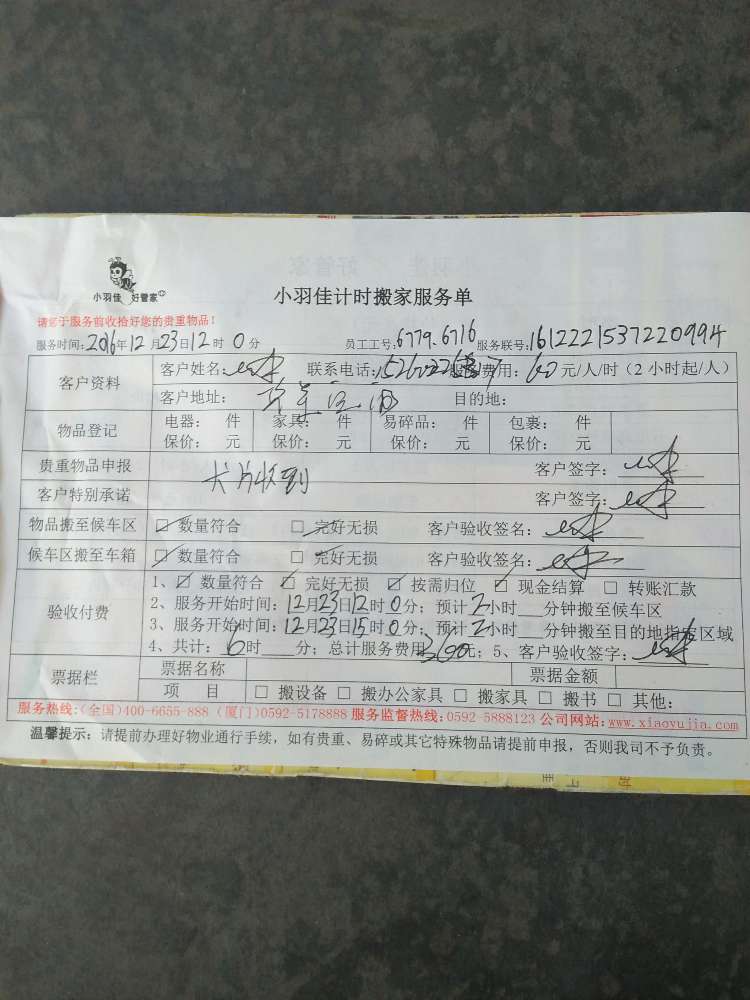 小羽佳 好管家
小羽佳计时搬家服务单
请您于服务前收拾好您的贵重物品！
服务时间：2016年12月23日12时0分 员工工号：6779.6716 服务联号：1612221537220994
客户资料 客户姓名： 联系电话： 费用：60元/人/时（2小时起/人）
客户地址： 目的地：
物品登记 电器： 件 家具： 件 易碎品： 件 包裹： 件
保价： 元 保价： 元 保价： 元 保价： 元
贵重物品申报 客户签字：
客户特别承诺 客户签字：
物品搬至候车区 □ 数量符合 □ 完好无损 客户验收签名：
候车区搬至车箱 □ 数量符合 □ 完好无损 客户验收签名：
验收付费 1、☑ 数量符合 ☑ 完好无损 ☑ 按需归位 ☑ 现金结算 □ 转账汇款
2、服务开始时间：12月23日12时0分；预计2小时___分钟搬至候车区
3、服务开始时间：12月23日15时0分；预计2小时___分钟搬至目的地指定区域
4、共计：6时____分；总计服务费用360元；5、客户验收签字：
票据栏 票据名称 票据金额
项 目 □ 搬设备 □ 搬办公家具 □ 搬家具 □ 搬书 □ 其他：
服务热线：(全国)400-6655-888 (厦门)0592-5178888 服务监督热线：0592-5888123 公司网站：www.xiaoyujia.com
温馨提示：请提前办理好物业通行手续，如有贵重、易碎或其它特殊物品请提前申报，否则我司不予负责。